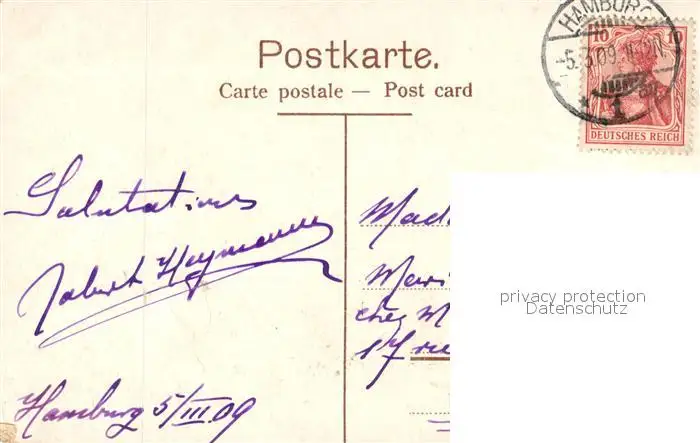 Postkarte.
Carte postale — Post card
HAMBURG
-5.3.09.
* 1
10 10
DEUTSCHES REICH
Salutations
Robert Heymann
Hamburg 5/III 09
Mad
Mari
chez M
17 rue
privacy protection
Datenschutz